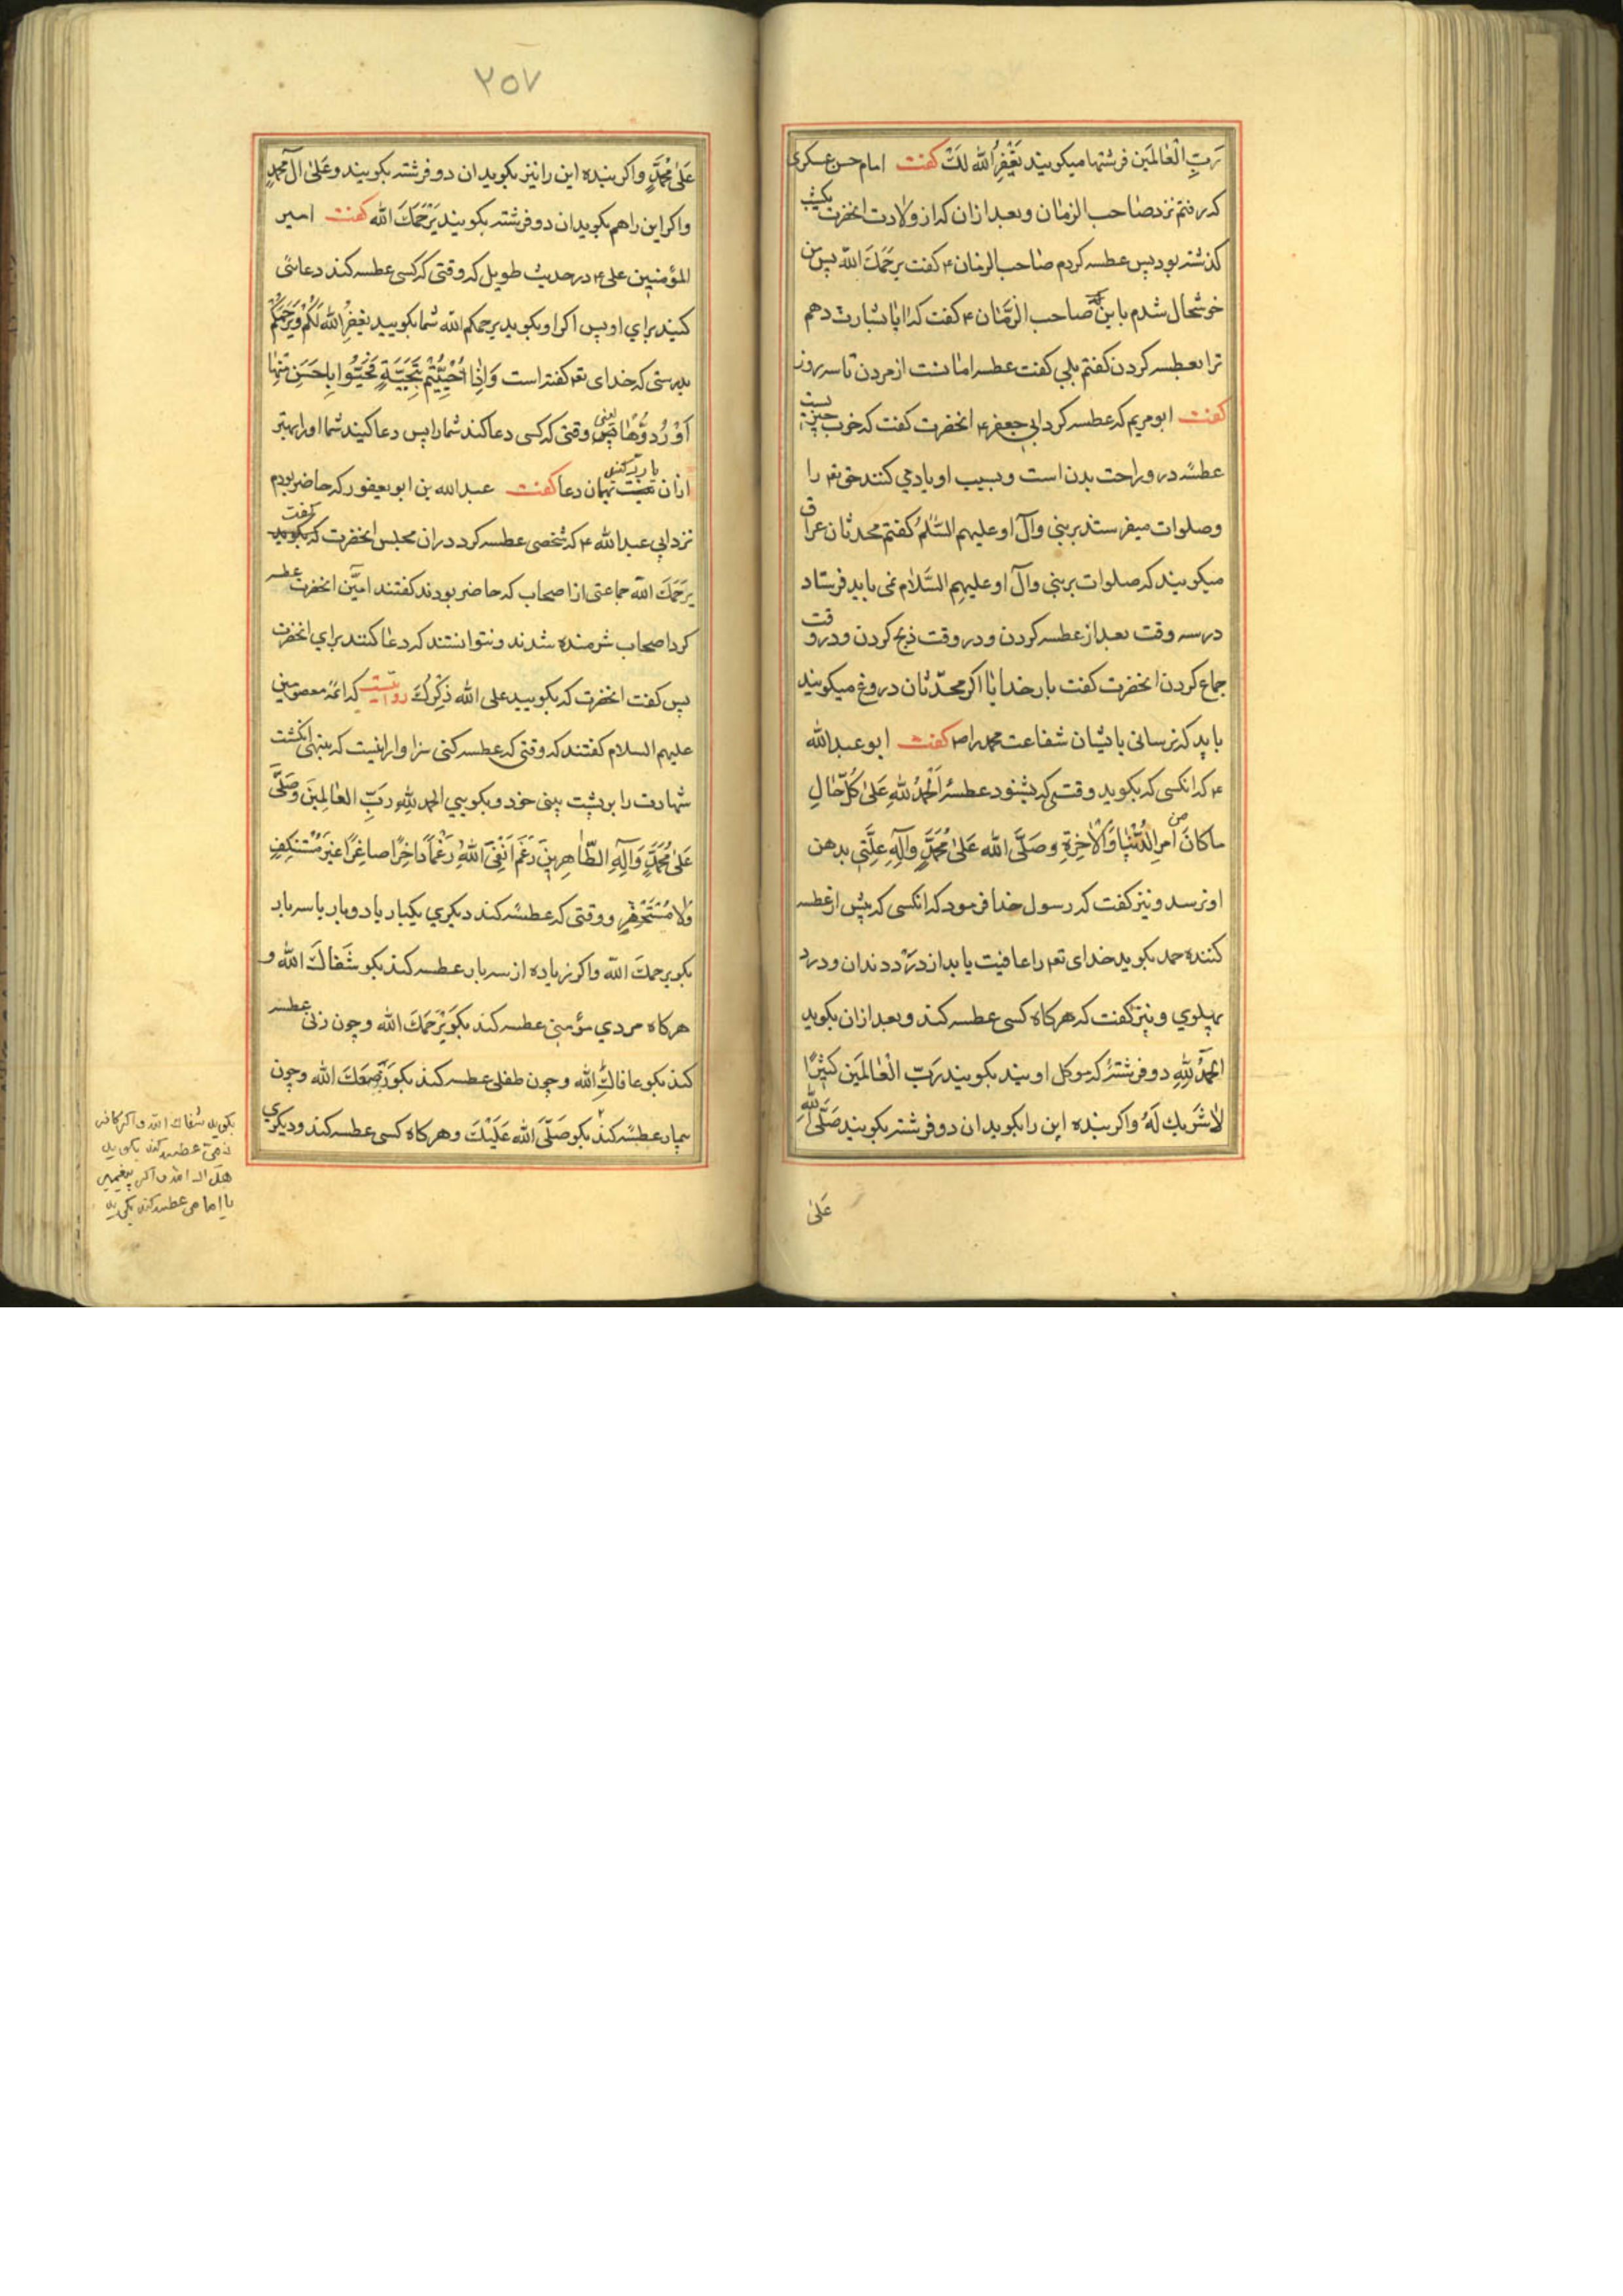 رَبِّ الْعٰالَمَین فرشتها میکویند یَغْفِرُ الله لَکَ کفت امام حسن عسکری
که رفتم نزد صاحب الزمان و بعد ازان که از ولادت انحضرت یکشب
کذشته بود پس عطسه کردم صاحب الزمان ۴ کفت یَرحَمَكَ الله پس من
خوشحال شدم باین که صاحب الزمان ۴ کفت که ایا بشارت دهم
ترا بعطسه کردن کفتم بلی کفت عطسه امانست از مردن تا سه روز
کفت ابو مریم که عطسه کرد ابی جعفر ۴ انحضرت کفت که خوب چیزیست
عطسه درو راحت بدن است و بسبب او یاد می کنند حق تعه را
و صلوات میفرستند بر نبی و آل او علیهم السَّلٰمُ کفتم محدثان عراق
میکویند که صلوات بر نبی و آل او علیهم السَّلام نمی باید فرستاد
در سه وقت بعد از عطسه کردن و در وقت ذبح کردن و در وقت
جماع کردن انحضرت کفت بار خدایا اکر محدّثان دروغ میکویند
باید که نرسانی باایشان شفاعت محمد را ص کفت ابو عبدالله
۴ که انکسی که بکوید وقتی که بشنود عطسهٔ اَلْحَمْدُ لِلّٰهِ عَلیٰ کُلِّ حٰالٍ
ماکانَ من اَمرِ الدُّنْیٰا وَالْاٰخِرَةِ وصَلَّی الله عَلیٰ مُحَمَّدٍ وآلِهِ علتی بدهن
او نرسد و نیز کفت که رسول خدا فرمود که انکسی که پیش از عطسه
کننده حمد بکوید خدای تعه را عافیت یابد از درد دندان و درد
پهلوی و نیز کفت که هرکاه کسی عطسه کند و بعد ازان بکوید
الحَمْدُ لِلّٰهِ دو فرشتهٔ که موکل اویند بکویند رَبِّ الْعٰالَمَین کَثیرًا
لاٰ شَریكَ لَهُ واکر بنده این را بکوید ان دو فرشته بکویند صَلَّی اللّٰه
عَلیٰ
۲۵۷
عَلیٰ مُحَمَّدٍ واکر بنده این را نیز بکوید ان دو فرشته بکویند وعَلیٰ آل مُحَمَّدٍ
واکر این را هم بکوید ان دو فرشته بکویند یَرْحَمَكَ الله کفت امیر
المؤمنین علی ۴ در حدیث طویل که وقتی که کسی عطسه کند دعائی
کنید برای او پس اکر او بکوید یرحمکم الله شما بکویید یغفِرُ الله لَکُمْ ویَرْحَمُکُمْ
بدرستی که خدای تعه کفته است وَاِذٰا حُیِّیتُمْ بِتَحِیَّةٍ فَحَیُّوا بِاَحْسَنِ مِنْهٰا
اَوْ رُدُوّهٰا یعنی وقتی که کسی دعا کند شما را پس دعا کنید شما او را بهتر
ازان یا رد کنید همان دعا کفت عبدالله بن ابو یعفور که حاضر بودم
نزد ابی عبدالله ۴ که شخصی عطسه کرد دران مجلس انحضرت کفت
یَرحَمَكَ الله جماعتی از اصحاب که حاضر بودند کفتند امین انحضرت عطسه
کرد اصحاب شرمنده شدند و نتوانستند که دعا کنند برای انحضرت
پس کفت انحضرت که بکویید علی الله ذِکْرُكَ روایتست که ائمهٔ معصومین
علیهم السلام کفتند که وقتی که عطسه کنی سزاوار انیست که بنهی انکشت
شهادت را بر پشت بینی خود و بکویی الحمد لِلّٰهِ رَبِّ العٰالَمینَ وصَلَّی
عَلیٰ مُحَمَّدٍ وَآلِهِ الطّٰاهِرینَ رَغَمَ اَنْفی لِلّٰهِ رَغْماً داخِرًا صاغِرًا غیْرَ مُسْتَنْکِفٍ
وَلاٰ مُسْتَحْسِرٍ و وقتی که عطسه کند دیکری یکبار یا دو بار یا سه بار
بکو یرحمكَ الله واکر زیاده از سه بار عطسه کند بکو شَفٰاكَ الله و
هرکاه مردی مؤمنی عطسه کند بکو یَرْحَمَكَ الله و چون زنی عطسه
کند بکو عافاكِ الله و چون طفلی عطسه کند بکو الله و چون
بیمار عطسه کند بکو صَلَّی الله عَلَیْكَ و هرکاه کسی عطسه کند و دیکری
بکوید شفاك الله و اکر کافر
ذمی عطسه کند بکوید
هداك الله و اکر پیغمبر
یا امامی عطسه کند بکوید